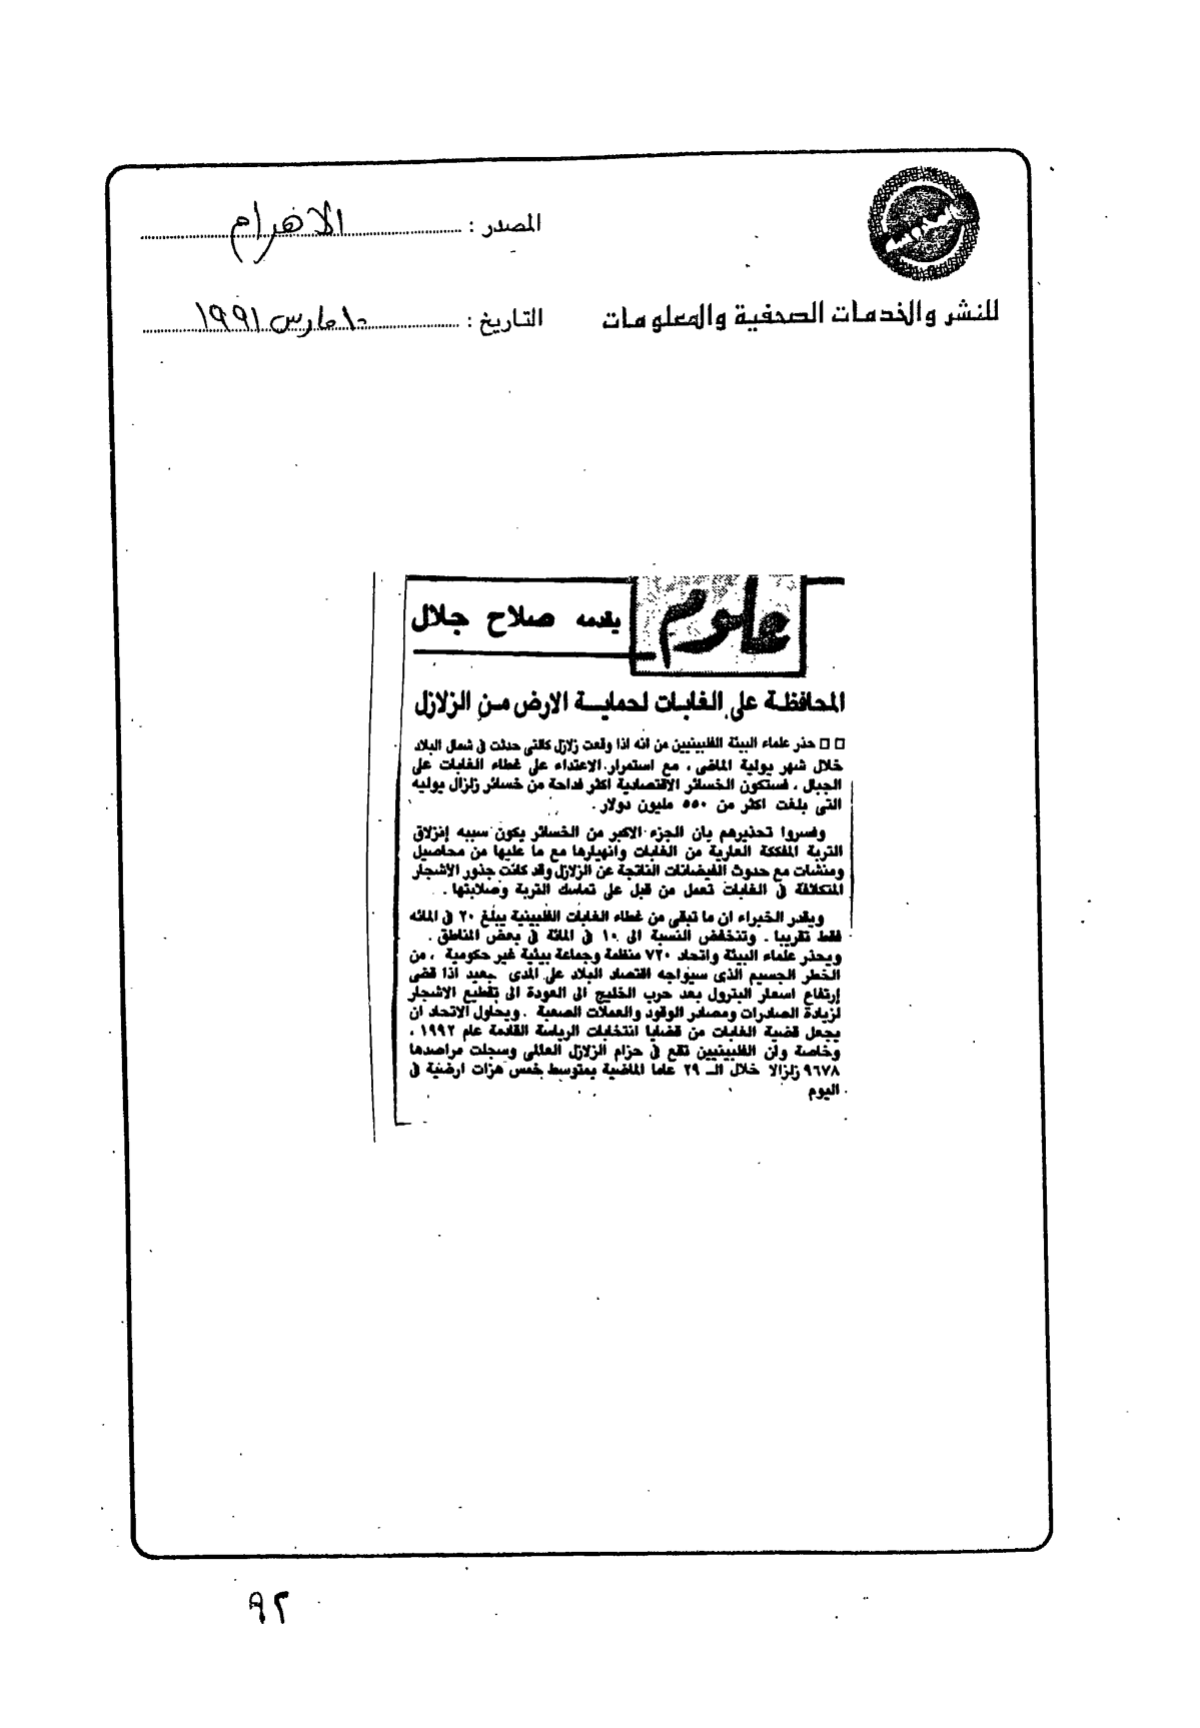 المصدر : الاهرام
للنشر والخدمات الصحفية والمعلومات
التاريخ : ١٠ مارس ١٩٩١
علوم
يقدمه صلاح جلال
المحافظة على الغابات لحماية الارض من الزلازل
□□ حذر علماء البيئة الفلبينيين من انه اذا وقعت زلازل كالتى حدثت فى شمال البلاد
خلال شهر يولية الماضى ، مع استمرار الاعتداء على غطاء الغابات على
الجبال ، فستكون الخسائر الاقتصادية اكثر فداحة من خسائر زلزال يوليه
التى بلغت اكثر من ٥٥٠ مليون دولار .
وفسروا تحذيرهم بان الجزء الاكبر من الخسائر يكون سببه إنزلاق
التربة المفككة العارية من الغابات وانهيارها مع ما عليها من محاصيل
ومنشات مع حدوث الفيضانات الناتجة عن الزلازل وقد كانت جذور الاشجار
المتكاثفة فى الغابات تعمل من قبل على تماسك التربة وصلابتها .
ويقدر الخبراء ان ما تبقى من غطاء الغابات الفلبينية يبلغ ٢٠ فى المائه
فقط تقريبا . وتنخفض النسبة الى ١٠ فى المائة فى بعض المناطق .
ويحذر علماء البيئة واتحاد ٧٢٠ منظمة وجماعة بيئية غير حكومية ، من
الخطر الجسيم الذى سيواجه اقتصاد البلاد على المدى البعيد اذا قضى
إرتفاع اسعار البترول بعد حرب الخليج الى العودة الى تقطيع الاشجار
لزيادة الصادرات ومصادر الوقود والعملات الصعبة . ويحاول الاتحاد ان
يجعل قضية الغابات من قضايا انتخابات الرياسة القادمة عام ١٩٩٢ ،
وخاصة وأن الفلبينيين تقع فى حزام الزلازل العالمى وسجلت مراصدها
٩٦٧٨ زلزالا خلال الـ ٢٩ عاما الماضية بمتوسط خمس هزات ارضية فى
اليوم
٩٢